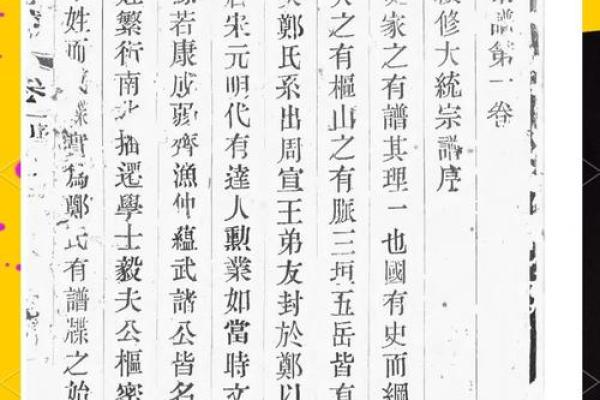 譜第一卷
修大統宗譜序
家之有譜其理一也國有史而綱
之有樞山之有脈三垣五岳皆有
鄭氏系出周宣王弟友封於鄭以
宋元明代有達人勳業如當時文
若康成弱齊漁仲蘊武諸公皆名
繁衍南 抽遷學士毅夫公樞密
姓而 牒實為鄭氏有譜牒之始
卷